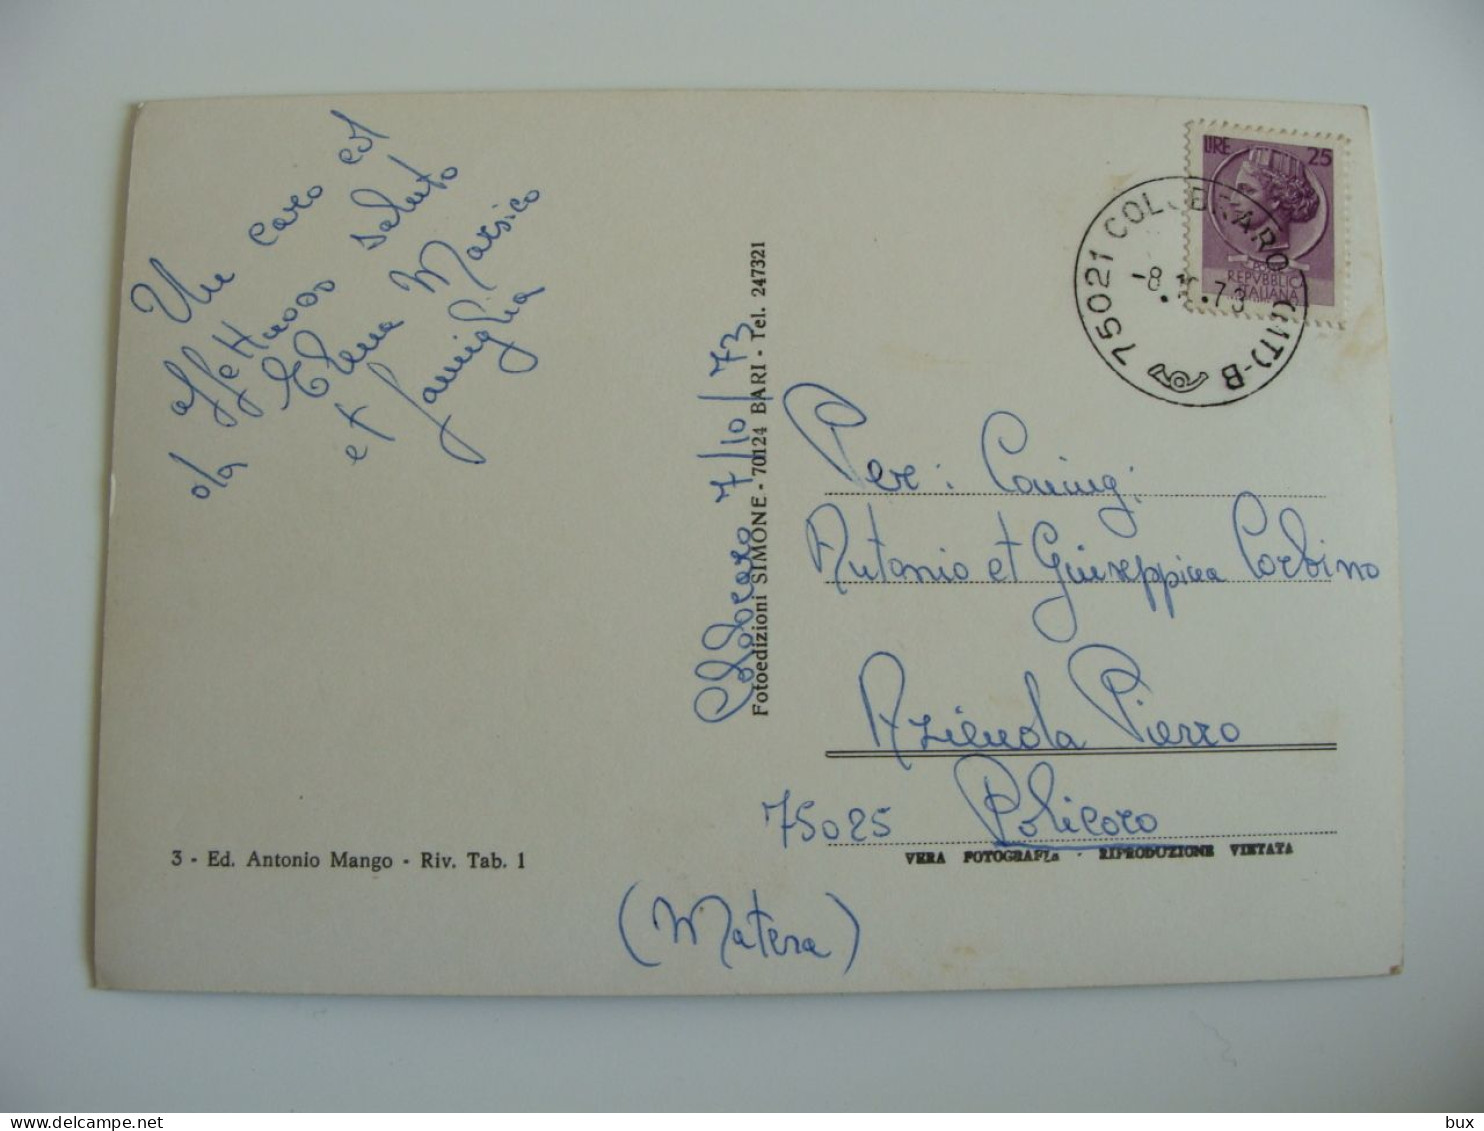 Un caro ed
affettuoso saluto
da Elena Marsico
et famiglia
3 - Ed. Antonio Mango - Riv. Tab. 1
Colobraro 7/10/73
Fotoedizioni SIMONE - 70124 BARI - Tel. 247321
LIRE 25
REPVBBLICA
ITALIANA
75021 COLOBRARO (MT)-B
-8. 10. 73
Per i Coniugi
Antonio et Giuseppina Corbino
Azienda Pierro
75025 Policoro
(Matera)
VERA FOTOGRAFIA - RIPRODUZIONE VIETATA
bux